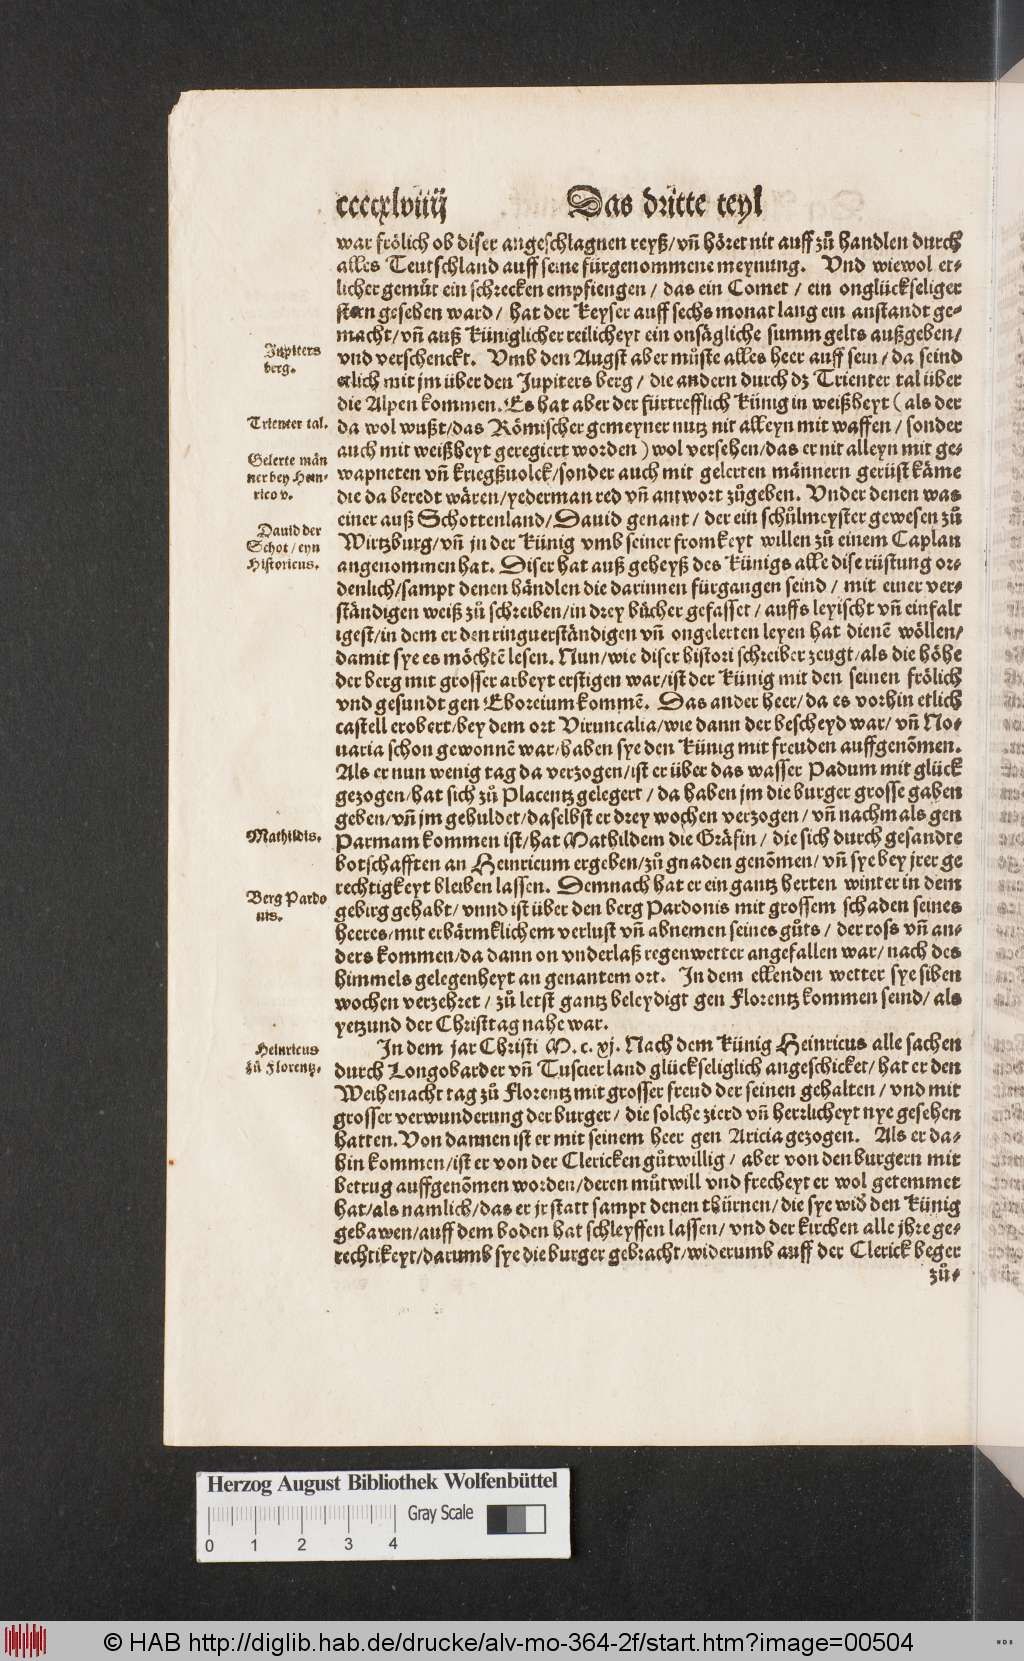 ccccxlviiij Das dritte teyl
war frölich ob diser angeschlagnen reyß/vñ höret nit auff zů handlen durch
alles Teutschland auff seine fürgenommene meynung. Vnd wiewol et-
licher gemüt ein schrecken empfiengen / das ein Comet / ein onglückseliger
stern gesehen ward / hat der Keyser auff sechs monat lang ein anstandt ge-
macht/vñ auß Küniglicher reilicheyt ein onsägliche summ gelts außgeben/
vnd verschenckt. Vmb den Augst aber müste alles heer auff sein / da seind
etlich mit jm über den Jupiters berg / die andern durch dz Trienter tal über
die Alpen kommen. Es hat aber der fürtrefflich Künig in weißheyt ( als der
da wol wußt/das Römischer gemeyner nutz nit alleyn mit waffen / sonder
auch mit weißheyt geregiert worden ) wol versehen/das er nit alleyn mit ge-
wapneten vñ kriegßuolck/sonder auch mit gelerten männern gerüst käme
die da beredt wären/yederman red vñ antwort zůgeben. Vnder denen was
einer auß Schottenland/Dauid genant / der ein schůlmeyster gewesen zů
Wirtzburg/vñ jn der Künig vmb seiner fromkeyt willen zů einem Caplan
angenommen hat. Diser hat auß geheyß des Künigs alle dise rüstung or-
denlich/sampt denen händlen die darinnen fürgangen seind / mit einer ver-
ständigen weiß zů schreiben/in drey bücher gefasset / auffs leyischt vñ einfalt
igest/in dem er den ringuerständigen vñ ongelerten leyen hat dienē wöllen/
damit sye es möchtē lesen. Nun/wie diser histori schreiber zeugt/als die höhe
der berg mit grosser arbeyt erstigen war/ist der Künig mit den seinen frölich
vnd gesundt gen Eboreium kommē. Das ander heer/da es vorhin etlich
castell erobert/bey dem ort Viruncalia/wie dann der bescheyd war/ vñ No-
uaria schon gewonnē war/haben sye den Künig mit freuden auffgenōmen.
Als er nun wenig tag da verzogen/ist er über das wasser Padum mit glück
gezogen/hat sich zů Placentz gelegert / da haben jm die burger grosse gaben
geben/vñ jm gehuldet/daselbst er drey wochen verzogen / vñ nachmals gen
Parmam kommen ist/hat Mathildem die Gräfin / die sich durch gesandte
botschafften an Heinricum ergeben/zů gnaden genōmen/vñ sye bey jrer ge
rechtigkeyt bleiben lassen. Demnach hat er ein gantz herten winter in dem
gebirg gehabt/ vnnd ist über den berg Pardonis mit grossem schaden seines
heeres/mit erbärmklichem verlust vñ abnemen seines gůts / der ross vñ an-
ders kommen/da dann on vnderlaß regenwetter angefallen war/nach des
himmels gelegenheyt an genantem ort. In dem ellenden wetter sye siben
wochen verzehret / zů letst gantz beleydigt gen Florentz kommen seind/ als
yetzund der Christtag nahe war.
In dem jar Christi M. c. xj. Nach dem Künig Heinricus alle sachen
durch Longobarder vñ Tuscier land glückseliglich angeschicket/ hat er den
Weihenacht tag zů Florentz mit grosser freud der seinen gehalten / vnd mit
grosser verwunderung der burger / die solche zierd vñ herrlicheyt nye gesehen
hatten. Von dannen ist er mit seinem heer gen Aricia gezogen. Als er da-
hin kommen/ist er von der Clericken gůtwillig / aber von den burgern mit
betrug auffgenōmen worden/deren můtwill vnd frecheyt er wol getemmet
hat/als namlich/das er jr statt sampt denen thürnen/die sye wid den Künig
gebawen/auff dem boden hat schleyffen lassen/ vnd der kirchen alle jhre ge-
rechtikeyt/darumb sye die burger gebracht/widerumb auff der Clerick beger
zů-
Jupiters
berg.
Trienter tal.
Gelerte män
ner bey Hein-
rico v.
Dauid der
Schot / eyn
Historicus.
Mathildis.
Berg Pardo
nis.
Heinricus
zů Florentz.
Herzog August Bibliothek Wolfenbüttel
Gray Scale
0 1 2 3 4
© HAB http://diglib.hab.de/drucke/alv-mo-364-2f/start.htm?image=00504